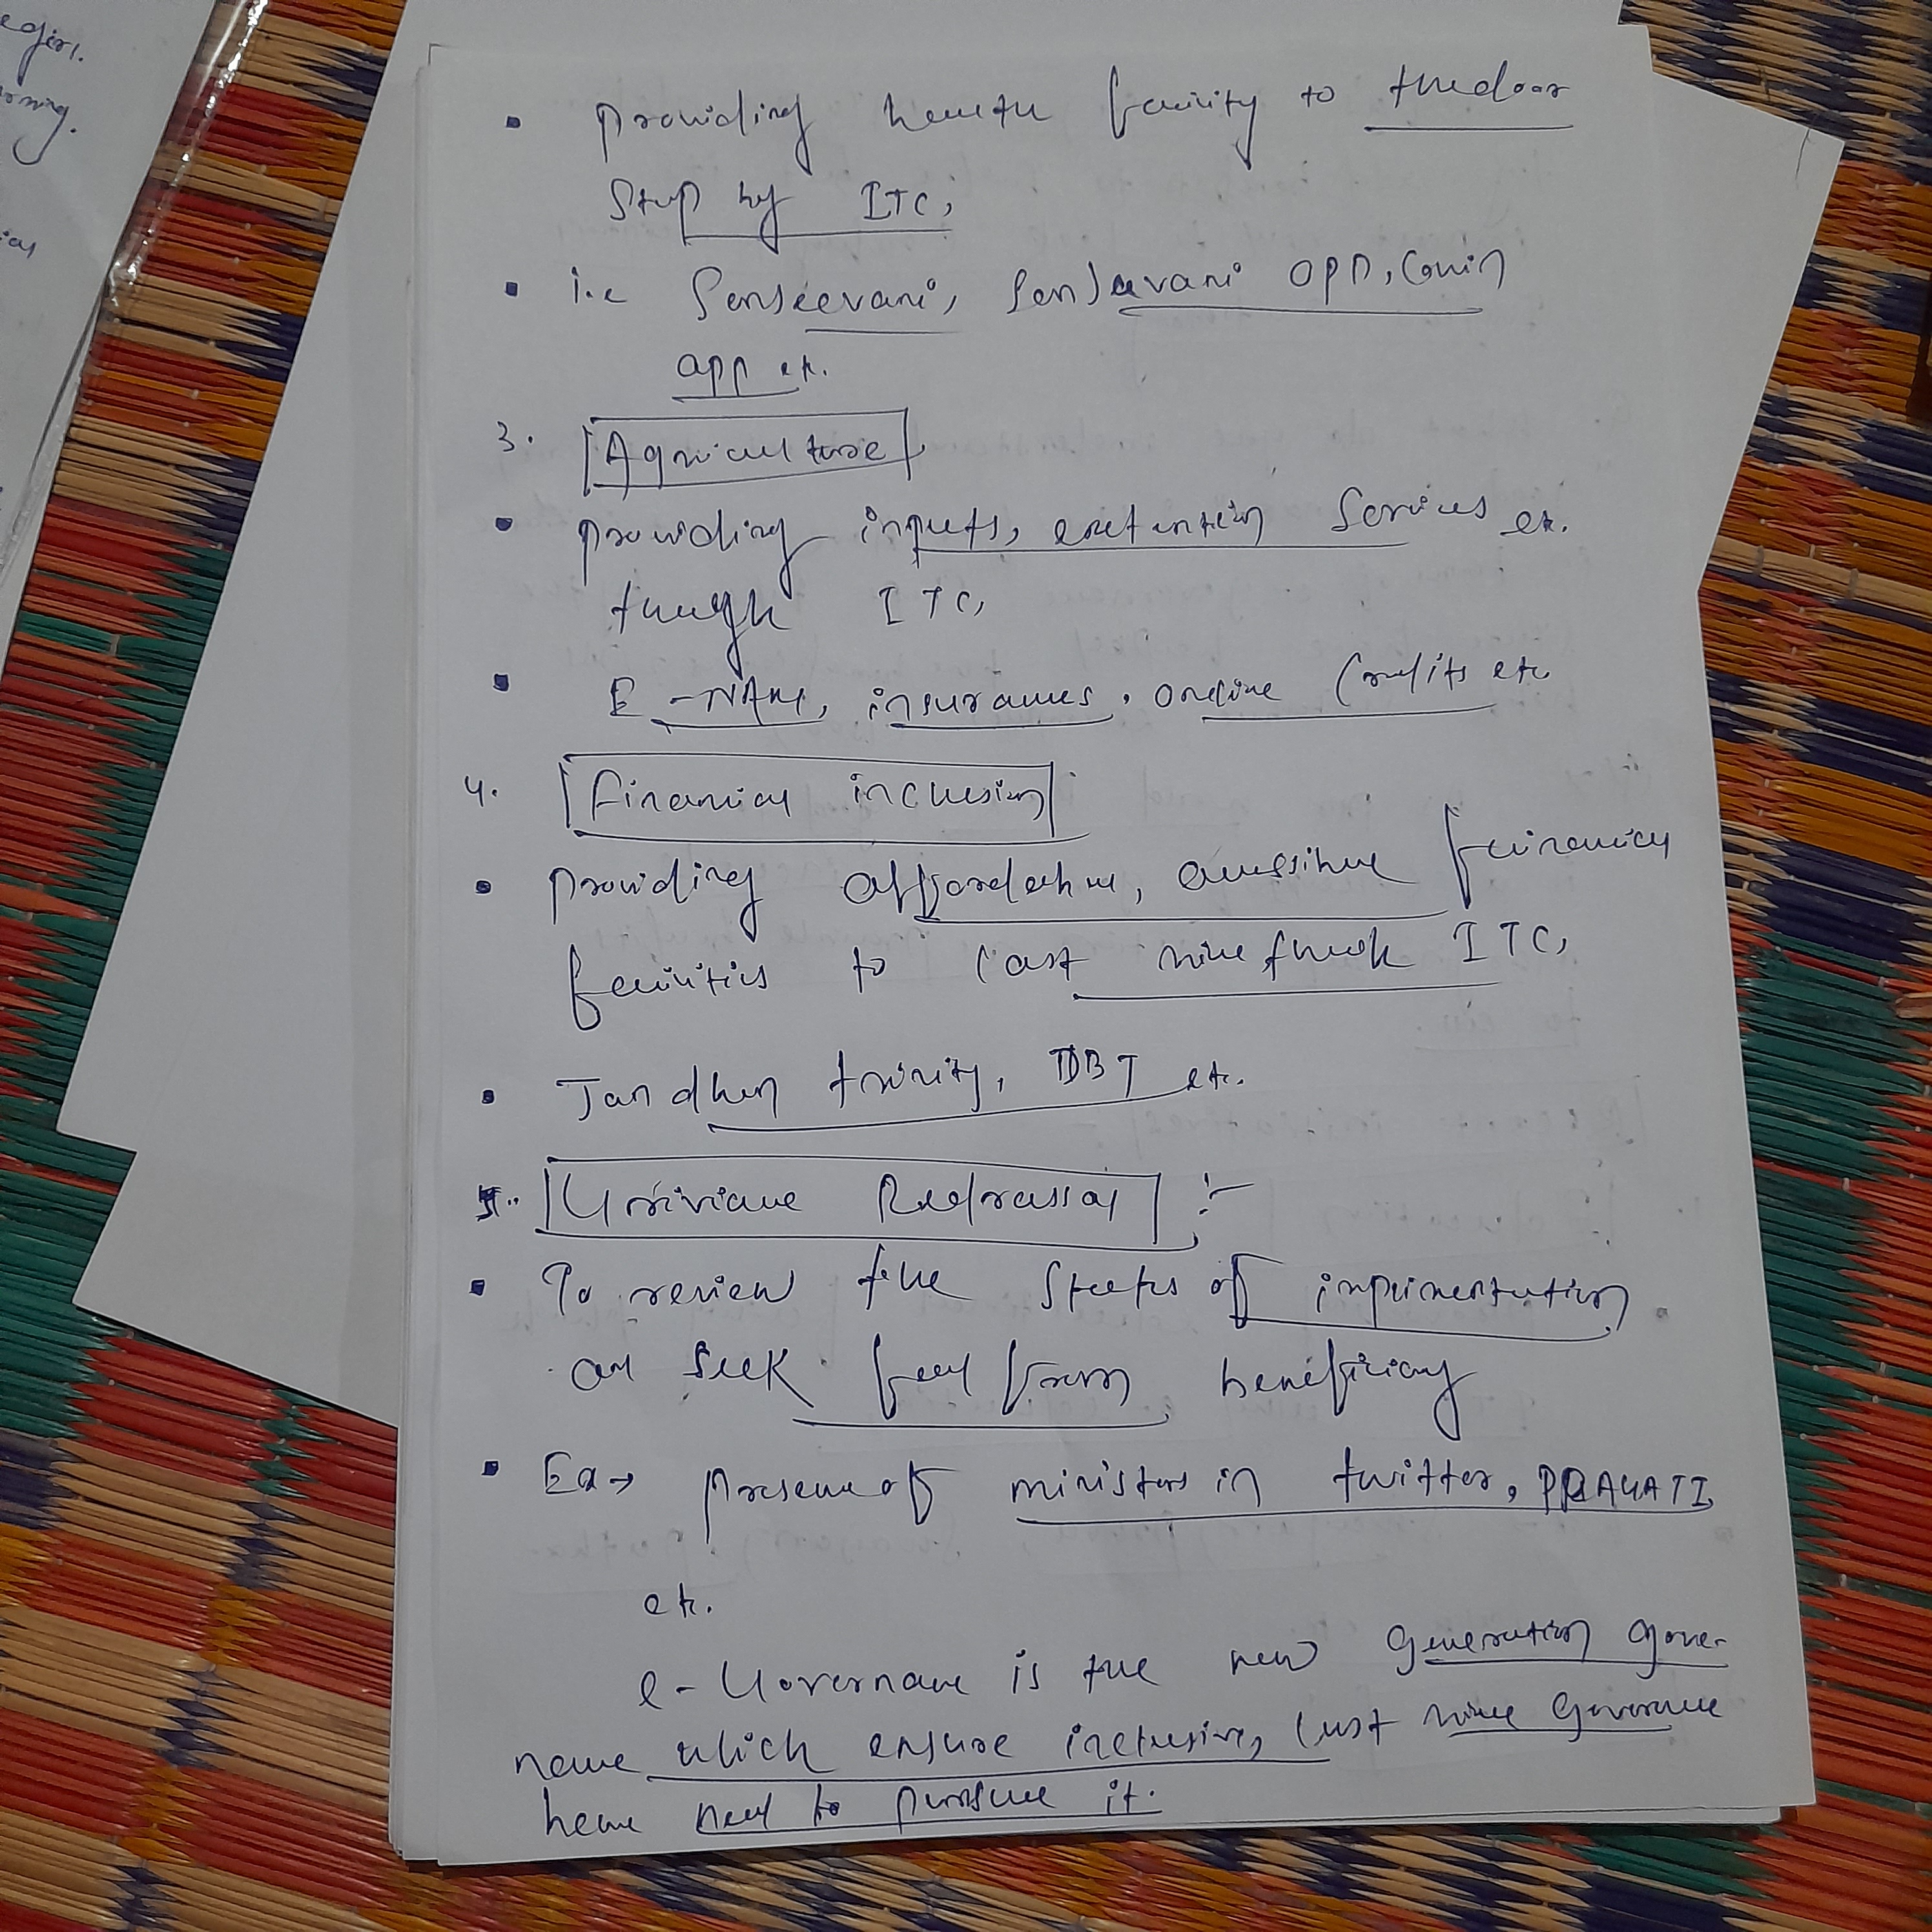 egies.
orning.
• Providing health facility to the door
Step by ITC,
• i.e Senjeevani, Senjeevani OPD, Cowin
app etc.
3. Agriculture
• providing inputs, extention Services etc.
through ITC,
• E-NAM, insurances, online Credits etc
4. Financial inclusion
• providing affordable, accessible financial
facilities to last mile through ITC,
• Jandhan trinity, DBT etc.
5. Griviance Redressal :-
• To review the Steps of implimentation
an seek feed from beneficiary
• Ex→ presence of ministers in twitter, PRAGATI,
etc.
e-Governance is the new generation gover-
nance which ensure inclusive, last mile Governance
hence need to pursue it.